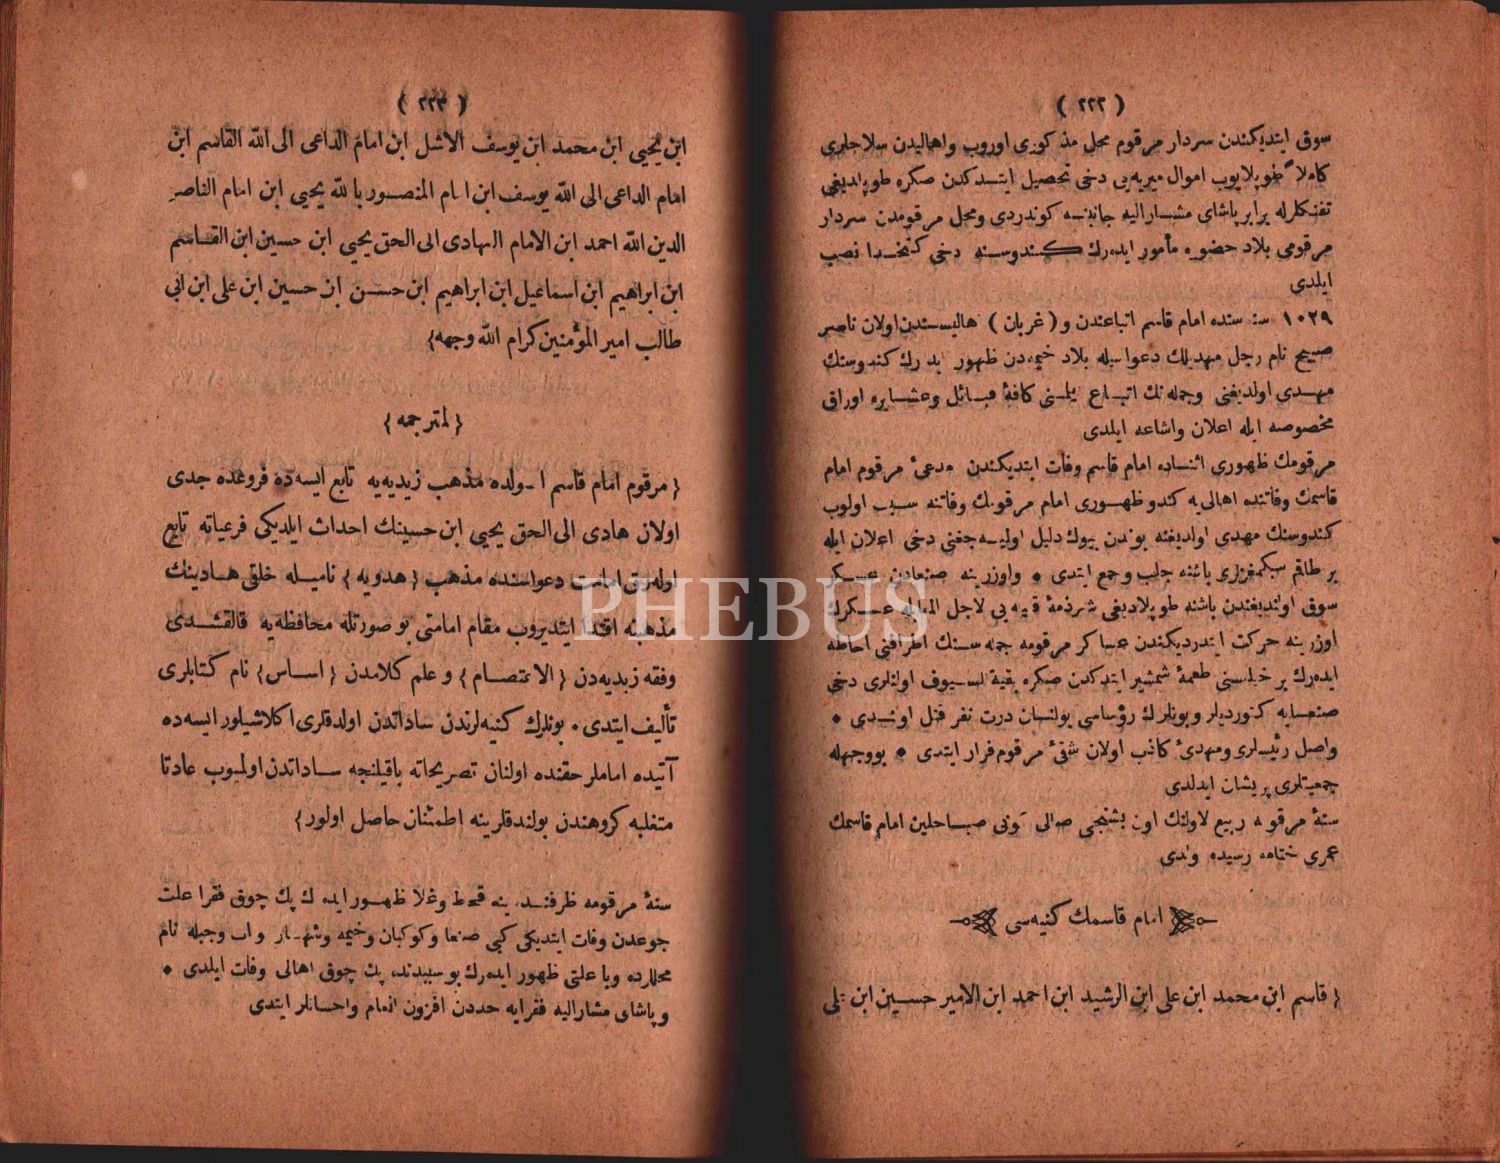 ( ٢٢٢ )
سوق ايتديكندن سردار مرقوم محل مذكورى اوروب واهاليدن سلاحلرى
كاملاً طوپلايوب اموال ميريه‌يى دخى تحصيل ايتدكدن صكره طوپلاديغى
تفنكلرله برابر پاشاى مشاراليه جانبنه كوندردى ومحل مرقومدن سردار
مرقومى بلاد حضوره مأمور ايده‌رك كندوسنه دخى كتخدا نصب
ايلدى
١٠٢٩ سنه سنده امام قاسم اتباعندن و ( غربان ) هاليسندن اولان ناصر
صبيح نام رجل مهديلك دعواسيله بلاد خيمه‌دن ظهور ايدرك كندوسنك
مهدى اولديغنى وجمله‌نك اتباع ايلمنى كافۀ قبائل وعشايره اوراق
مخصوصه ايله اعلان واشاعه ايلدى
مرقومك ظهورى اثناده امام قاسم وفات ايتديكندن مدعئ مرقوم امام
قاسمك وفاتنده اهالى‌يه كندو ظهورى امام مرقومك وفاتنه سبب اولوب
كندوسنك مهدى اولديغنه بوندن بيوك دليل اوليه‌جغنى دخى اعلان ايله
بر طاقم سبكمغزلرى باشنه جلب وجمع ايتدى • واوزرينه صنعادن عسكر
سوق اولنديغندن باشنه طوپلاديغى شرذمۀ قليله‌يى لاجل المقابله عسكرك
اوزرينه حركت ايتدرديكندن عساكر مرقومه جمله‌سنك اطرافنى احاطه
ايده‌رك بر خيليسنى طعمۀ شمشير ايتدكدن صكره بقية السيوف اولنلرى دخى
صنعايه كتورديلر وبونلرك رؤساسى بولنان درت نفر قتل اولندى •
واصل رئيسلرى ومهدئ كاذب اولان شقئ مرقوم فرار ايتدى • بووجهله
جمعيتلرى پريشان ايدلدى
سنۀ مرقومه ربيع الاولنك اون بشنجى صالى كونى صباحلين امام قاسمك
عمرى ختامه رسيده ولدى
امام قاسمك كنيه‌سى
{ قاسم ابن محمد ابن على ابن الرشيد ابن احمد ابن الامير حسين ابن على
( ٢٢٣ )
ابن يحيى ابن محمد ابن يوسف الاشل ابن امام الداعى الى الله القاسم ابن
امام الداعى الى الله يوسف ابن امام المنصور بالله يحيى ابن امام الناصر
الدين الله احمد ابن الامام الهادى الى الحق يحيى ابن حسين ابن القاسم
ابن ابراهيم ابن اسماعيل ابن ابراهيم ابن حسن ابن حسين ابن على ابن ابى
طالب امير المؤمنين كرام الله وجهه }
{ لمترجمه }
{ مرقوم امام قاسم اصولده مذهب زيديه‌يه تابع ايسه‌ده فروعده جدى
اولان هادى الى الحق يحيى ابن حسينك احداث ايلديكى فرعياته تابع
اوله‌رق امامت دعواسنده مذهب { هدويه } ناميله خلقى هادينك
مذهبنه اقتدا ايتديروب مقام امامتى بو صورتله محافظه‌يه قالقشدى
وفقه زيديه‌دن { الاعتصام } و علم كلامدن { اساس } نام كتابلرى
تأليف ايتدى • بونلرك كنيه‌لرندن ساداتدن اولدقلرى اكلاشيلور ايسه‌ده
آتيده اماملر حقنده اولنان تصريحاته باقيلنجه ساداتدن اولميوب عادتا
متغلبه كروهندن بولندقلرينه اطمئنان حاصل اولور }
سنۀ مرقومه ظرفنده ينه قحط وغلا ظهور ايده‌رك پك چوق فقرا علت
جوعدن وفات ايتديكى كبى صنعا وكوكبان وخيمه و اب وجبله نام
محللرده وبا علتى ظهور ايده‌رك بوسببدنده پك چوق اهالى وفات ايلدى •
وپاشاى مشاراليه فقرايه حددن افزون انعام واحسانلر ايتدى
PHEBUS